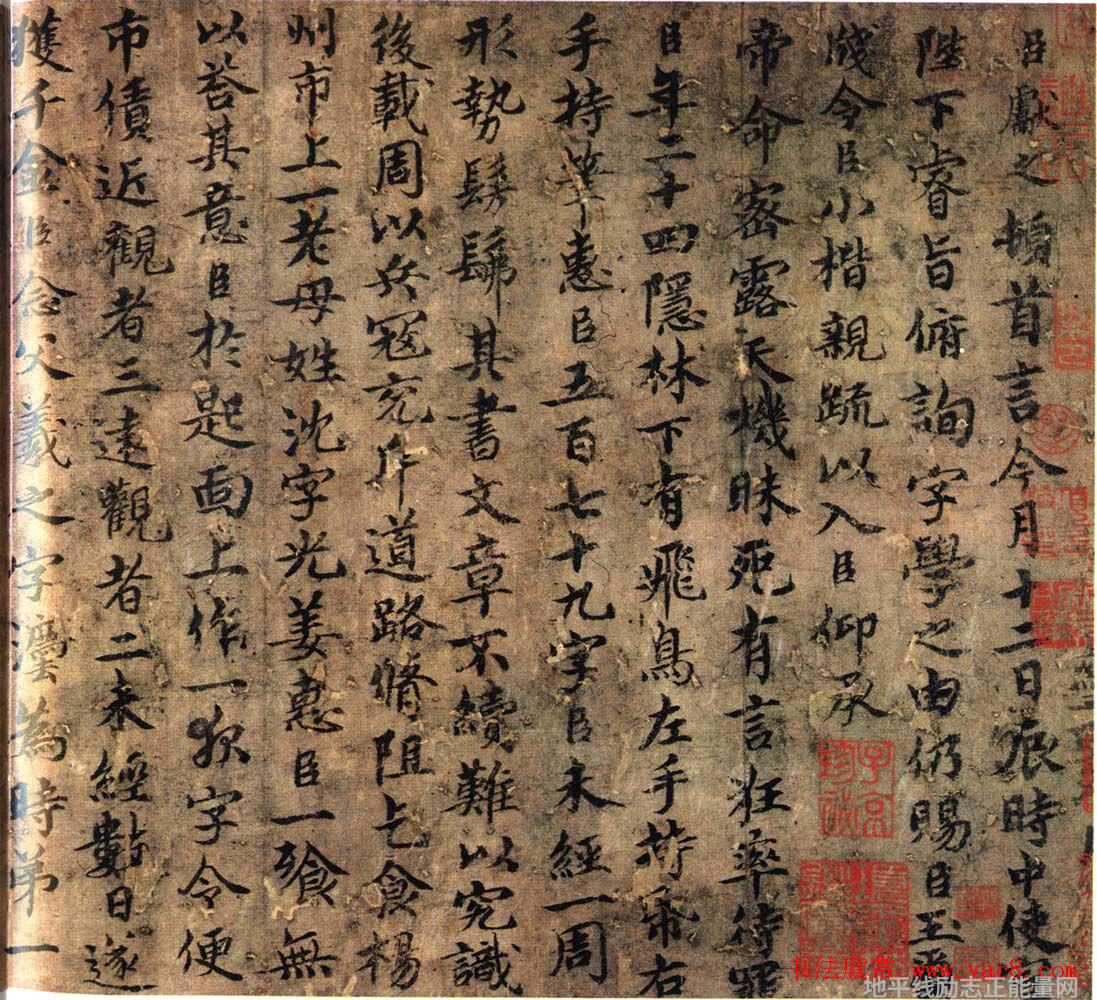 臣獻之頓首言今月十三日辰時中使
陛下睿旨俯詢字學之由仍賜臣玉
成令臣小楷親疏以入臣仰承
帝命密露天機昧死有言狂率待罪
臣年二十四隱林下有飛鳥左手帋右
手持筆惠臣五百七十九字臣未經一周
形勢髣髴其書文章不續難以究識
後載周以兵寇充斥道路脩阻乞食楊
州市上一老母姓沈字光姜惠臣一飡無
以荅其意臣於匙面上作一夜字令便
市債近觀者三遠觀者二未經數日遂
獲千金臣念父羲之字灋為時弟一
书法欣赏 www.yac8.com
地平线励志正能量网